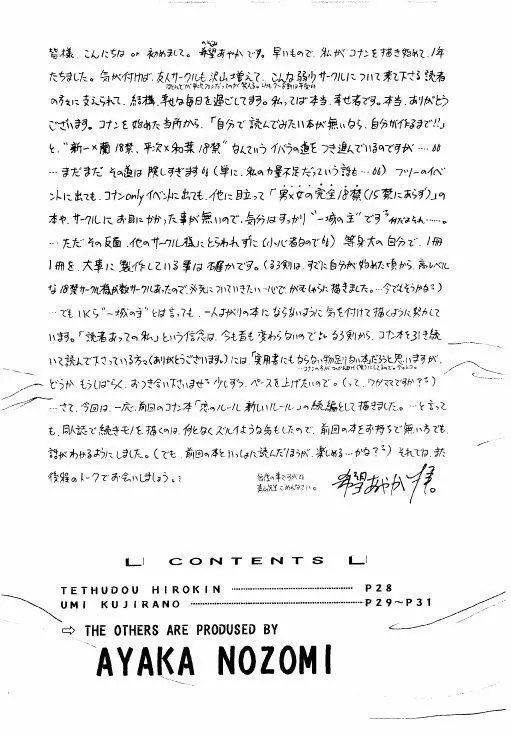 皆様、こんにちは or 初めまして。希望あやかです。早いもので、私がコナンを描き始めて、1年
たちました。気が付けば、友人サークルも沢山増えて、こんな弱少サークルについて来て下さる読者
の方々に支えられて、結構、幸せな毎日を過ごしてます。私って本当、幸せ者です。本当、ありがとう
ございます。コナンを始めた当所から、「自分で読んでみたい本が無いなら、自分が作るまで!!」
と、"新一×蘭18禁、平次×和葉18禁"なんていうイバラの道をつき進んでいるのですが…。
…まだまだその道は険しすぎます(単に、私の力量不足だっていう話も…)フリーのイベ
ントに出ても、コナンonlyイベントに出ても、他に目立って「男×女の完全18禁(15禁にあらず)」の
本や、サークルにお目にかかった事が無いので、気分はすっかり"一城の主"です
…ただその反面、他のサークル様にとらわれずに(小心者なので)等身大の自分で、1冊
1冊を、大事に製作している事は確かです。(るろ剣は、すでに自分が始めた頃から、高レベル
な18禁サークル様が数サークルあったので、必死についていきたい一心で、がむしゃらに描きました。…今でもそうかな?)
…でもいくら"一城の主"とは言っても、一人よがりの本にならないように気を付けて描くように努力して
います。「読者あっての私」という信念は、今も昔も変わらないので るろ剣から、コナン本を引き続
いて読んで下さっている方々(ありがとうございます。)には「実用書にもならない物足りない本だろうと思いますが、
どうか、もうしばらく、おつき合い下さいませ 少しずつ、ペースを上げたいので。(って、ワガママですか?)
…さて、今回は、一応、前回のコナン本「恋のルール 新しいルール」の続編として描きました。…と言って
も、同人誌で続きモノを描くのは、何となくズルイような気もしたので、前回の本をお持ちで無い方でも、
話がわかるようにしました。(でも、前回の本といっしょに読んだほうが、楽しめる…かな?)それでは、また
後程のトークでお会いしましょう。
希望あやか 拝。
CONTENTS
TETHUDOU HIROKIN P28
UMI KUJIRANO P29~P31
⇨ THE OTHERS ARE PRODUSED BY
AYAKA NOZOMI